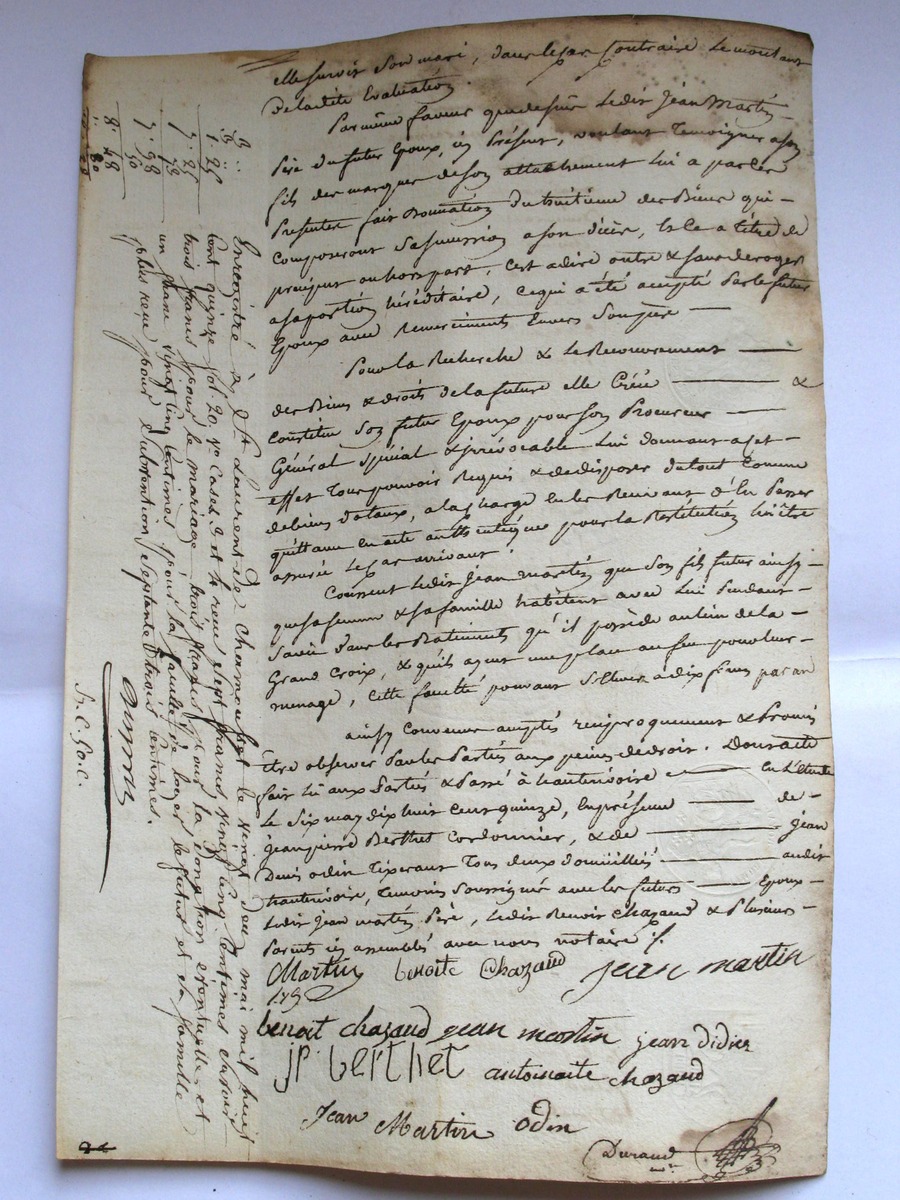 elle survit son mari, dans le cas contraire le montant
De ladite Evaluation
Par même faveur que dessus Ledit Jean Martin
Père du futur Epoux, ici Présent, voulant Temoigner a son
fils des marques de son attachement Lui a par Ces
Presentes fait Donnation du huitieme des Biens qui -
composeront sa succession a son décès, et Ce a titre de
preciput ou hors part, c'est a dire outre & sans deroger
a sa portion héréditaire, Ce qui a été accepté Par le futur
Epoux avec Remerciments Envers Son père —
Pour la Recherche & Le Recouvrement —
des Biens & droits de la future elle Créée — &
Constitue Son futur Epoux pour Son Procureur —
Général Spécial & irrévocable Lui donnant a cet -
effet Tous pouvoir Requis & de disposer du tout Comme
de biens dotaux, a la charge en les Recevant d'En Passer
quittance en acte authentique pour la Restitution lui être
assurée le cas arrivant.
Consent Ledit Jean martin que Son fils futur ainsy -
que sa femme & sa famille habitent avec Lui Pendant -
Sa vie Dans les Batiments qu'il possède au lieu de la -
Grand Croix, & qu'ils ayent une place au feu pour leur -
menage, Cette faculté pouvant S'Elever a dix francs par an
ainsy Convenu accepté reciproquement & Promis
être observer Par les Parties aux peines de droit. Dont acte
fait lu aux Parties & Passé à hauterivoire — En L'étude
Le Six may dix huit Cent quinze, En présence — de -
jean pierre Berthet Cordonnier, & de — jean
Denis odin Tixerant Tous deux domiciliés — audit
hauterivoire, Temoins Soussignés avec les futurs — Epoux -
Ledit Jean martin Père, Ledit Benoit Chazaud & Plusieurs -
Parents ici assemblés avec nous notaire /.
Martin benoite Chazaud jean martin
benoit chazaud jean martin jean didier
jp. berthet antoinaite chazaud
Jean Martin odin
Durand
Enregistré à St Laurent De Chamousset le vingt deux mai mil huit
cent quinze fol 20 vo Cases 2 et 3 reçu sept francs vingt cinq Centimes savoir
trois francs pour le mariage, trois francs pour la donation éventuelle, et
un franc vingt cinq Centimes pour la faculté de loger le futur et sa famille
plus reçu pour Subvention Septante trois Centimes.